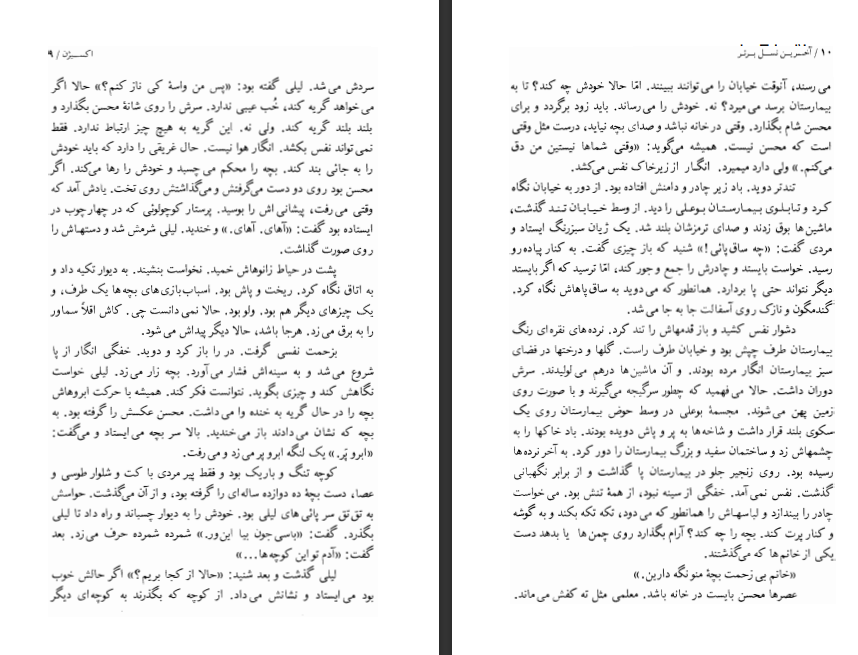 اکسیژن / ۹
سردش می‌شد. لیلی گفته بود: «پس من واسهٔ کی ناز کنم؟» حالا اگر
می‌خواهد گریه کند، خُب عیبی ندارد. سرش را روی شانهٔ محسن بگذارد و
بلند بلند گریه کند. ولی نه. این گریه به هیچ چیز ارتباط ندارد. فقط
نمی‌تواند نفس بکشد. انگار هوا نیست. حال غریقی را دارد که باید خودش
را به جائی بند کند. بچه را محکم می‌چسبد و خودش را رها می‌کند. اگر
محسن بود روی دو دست می‌گرفتش و می‌گذاشتش روی تخت. یادش آمد که
وقتی می‌رفت، پیشانی‌اش را بوسید. پرستار کوچولوئی که در چهارچوب در
ایستاده بود گفت: «آهای. آهای.» و خندید. لیلی شرمش شد و دستهاش را
روی صورت گذاشت.
پشت در حیاط زانوهاش خمید. نخواست بنشیند. به دیوار تکیه داد و
به اتاق نگاه کرد. ریخت و پاش بود. اسباب‌بازی‌های بچه‌ها یک طرف، و
یک چیزهای دیگر هم بود. ولو بود. حالا نمی‌دانست چی. کاش اقلاً سماور
را به برق می‌زد. هرجا باشد، حالا دیگر پیداش می‌شود.
بزحمت نفسی گرفت. در را باز کرد و دوید. خفگی انگار از پا
شروع می‌شد و به سینه‌اش فشار می‌آورد. بچه زار می‌زد. لیلی خواست
نگاهش کند و چیزی بگوید. نتوانست فکر کند. همیشه با حرکت ابروهاش
بچه را در حال گریه به خنده وا می‌داشت. محسن عکسش را گرفته بود. به
بچه که نشان می‌دادند باز می‌خندید. بالا سر بچه می‌ایستاد و می‌گفت:
«ابرو پَر.» یک لنگه ابرو پر می‌زد و می‌رفت.
کوچه تنگ و باریک بود و فقط پیر مردی با کت و شلوار طوسی و
عصا، دست بچهٔ ده دوازده ساله‌ای را گرفته بود، و از آن می‌گذشت. حواسش
به تق‌تق سر پائی‌های لیلی بود. خودش را به دیوار چسباند و راه داد تا لیلی
بگذرد. گفت: «باسی‌جون بیا این‌ور.» شمرده شمرده حرف می‌زد. بعد
گفت: «آدم تو این کوچه‌ها...»
لیلی گذشت و بعد شنید: «حالا از کجا بریم؟» اگر حالش خوب
بود می‌ایستاد و نشانش می‌داد. از کوچه که بگذرند به کوچه‌ای دیگر
۱۰ / آخرین نسل برتر
می‌رسند، آنوقت خیابان را می‌توانند ببینند. امّا حالا خودش چه کند؟ تا به
بیمارستان برسد می‌میرد؟ نه. خودش را می‌رساند. باید زود برگردد و برای
محسن شام بگذارد. وقتی در خانه نباشد و صدای بچه نیاید، درست مثل وقتی
است که محسن نیست. همیشه می‌گوید: «وقتی شماها نیستین من دق
می‌کنم.» ولی دارد میمیرد. انگار از زیرخاک نفس می‌کشد.
تندتر دوید. باد زیر چادر و دامنش افتاده بود. از دور به خیابان نگاه
کرد و تابلوی بیمارستان بوعلی را دید. از وسط خیابان تند گذشت،
ماشین‌ها بوق زدند و صدای ترمزشان بلند شد. یک ژیان سبزرنگ ایستاد و
مردی گفت: «چه ساق پائی!» شنید که باز چیزی گفت. به کنار پیاده‌رو
رسید. خواست بایستد و چادرش را جمع و جور کند، امّا ترسید که اگر بایستد
دیگر نتواند حتی پا بردارد. همانطور که می‌دوید به ساق پاهاش نگاه کرد.
گندمگون و نازک روی آسفالت جا به جا می‌شد.
دشوار نفس کشید و باز قدمهاش را تند کرد. نرده‌های نقره‌ای رنگ
بیمارستان طرف چپش بود و خیابان طرف راست. گلها و درختها در فضای
سبز بیمارستان انگار مرده بودند. و آن ماشین‌ها درهم می‌لولیدند. سرش
دوران داشت. حالا می‌فهمید که چطور سرگیجه می‌گیرند و با صورت روی
زمین پهن می‌شوند. مجسمهٔ بوعلی در وسط حوض بیمارستان روی یک
سکوی بلند قرار داشت و شاخه‌ها به پر و پاش دویده بودند. باد خاکها را به
چشمهاش زد و ساختمان سفید و بزرگ بیمارستان را دور کرد. به آخر نرده‌ها
رسیده بود. روی زنجیر جلو در بیمارستان پا گذاشت و از برابر نگهبانی
گذشت. نفس نمی‌آمد. خفگی از سینه نبود، از همهٔ تنش بود. می‌خواست
چادر را بیندازد و لباسهاش را همانطور که می‌دود، تکه تکه بکند و به گوشه
و کنار پرت کند. بچه را چه کند؟ آرام بگذارد روی چمن‌ها یا بدهد دست
یکی از خانم‌ها که می‌گذشتند.
«خانم بی‌زحمت بچهٔ منو نگه دارین.»
عصرها محسن بایست در خانه باشد. معلمی مثل ته کفش می‌ماند.